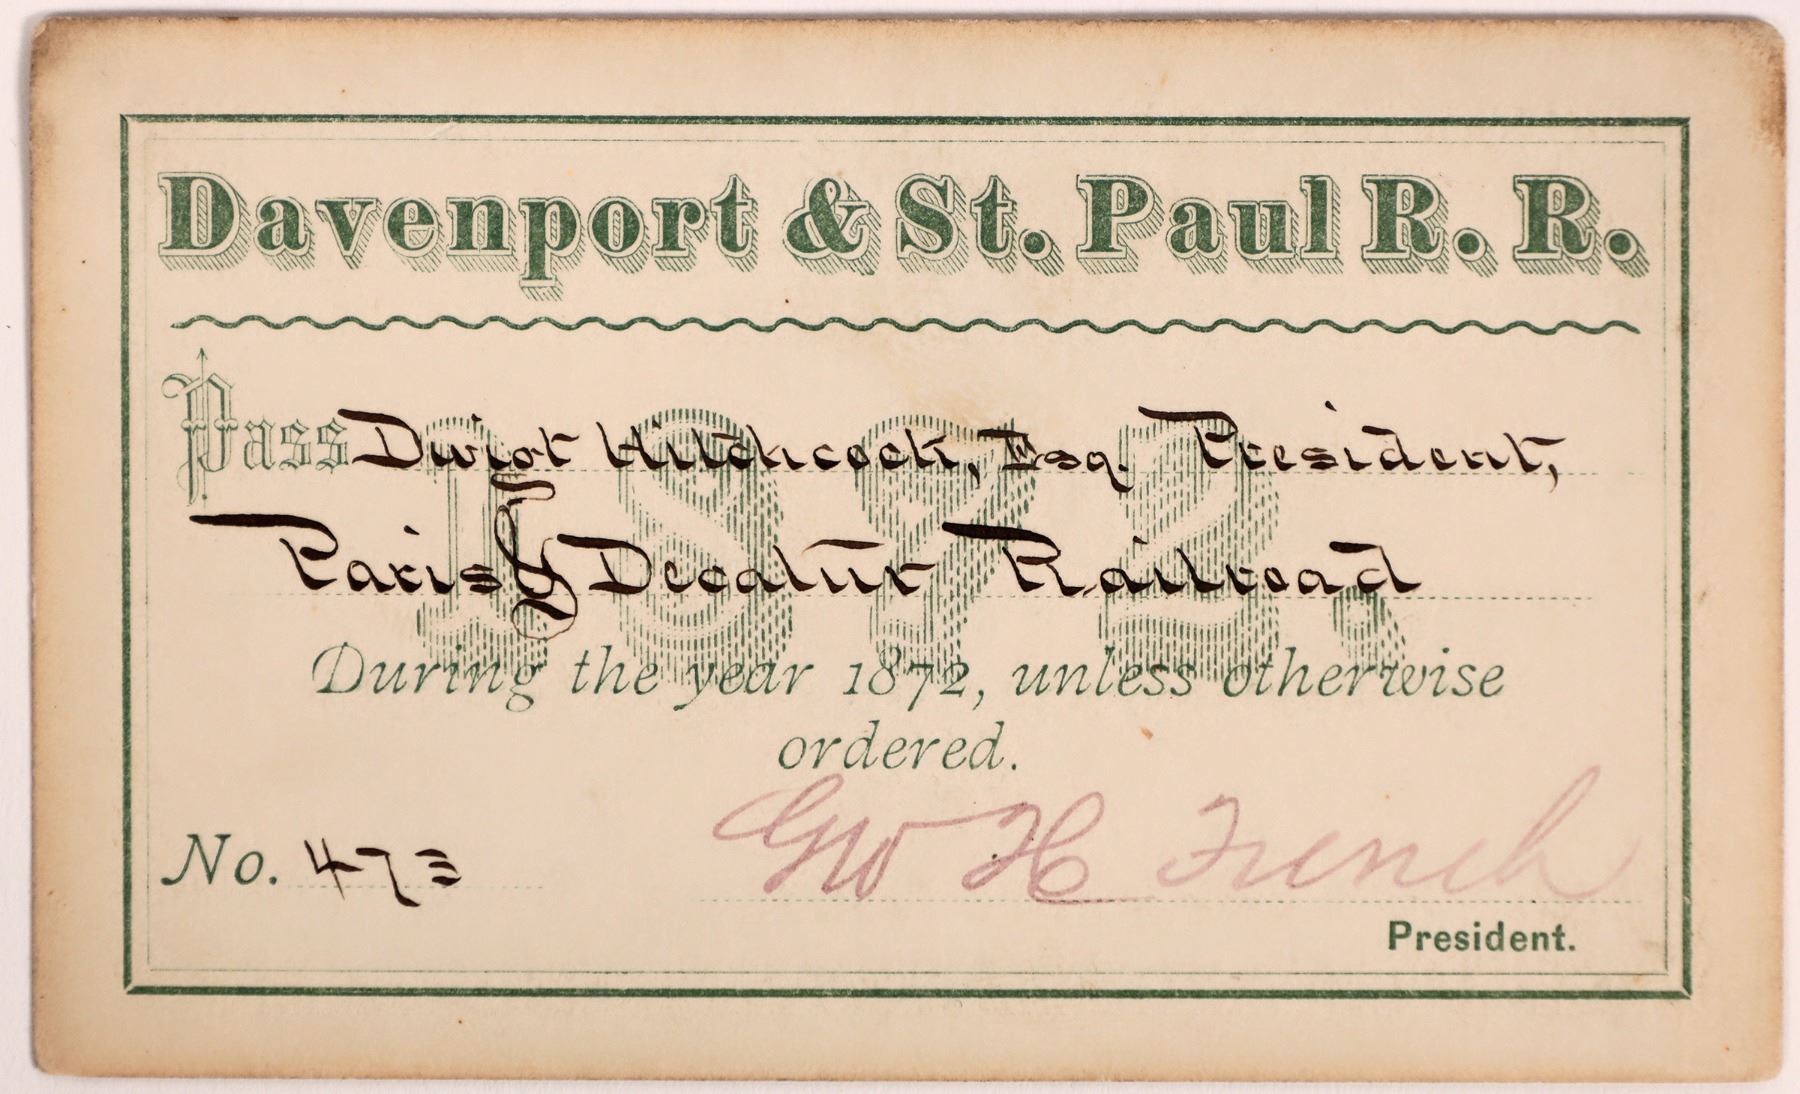 Davenport & St. Paul R. R.
1872.
Pass Dwigt Hitchcock, Esq. President,
Paris & Decatur Railroad
During the year 1872, unless otherwise
ordered.
No. 473
Geo H French
President.